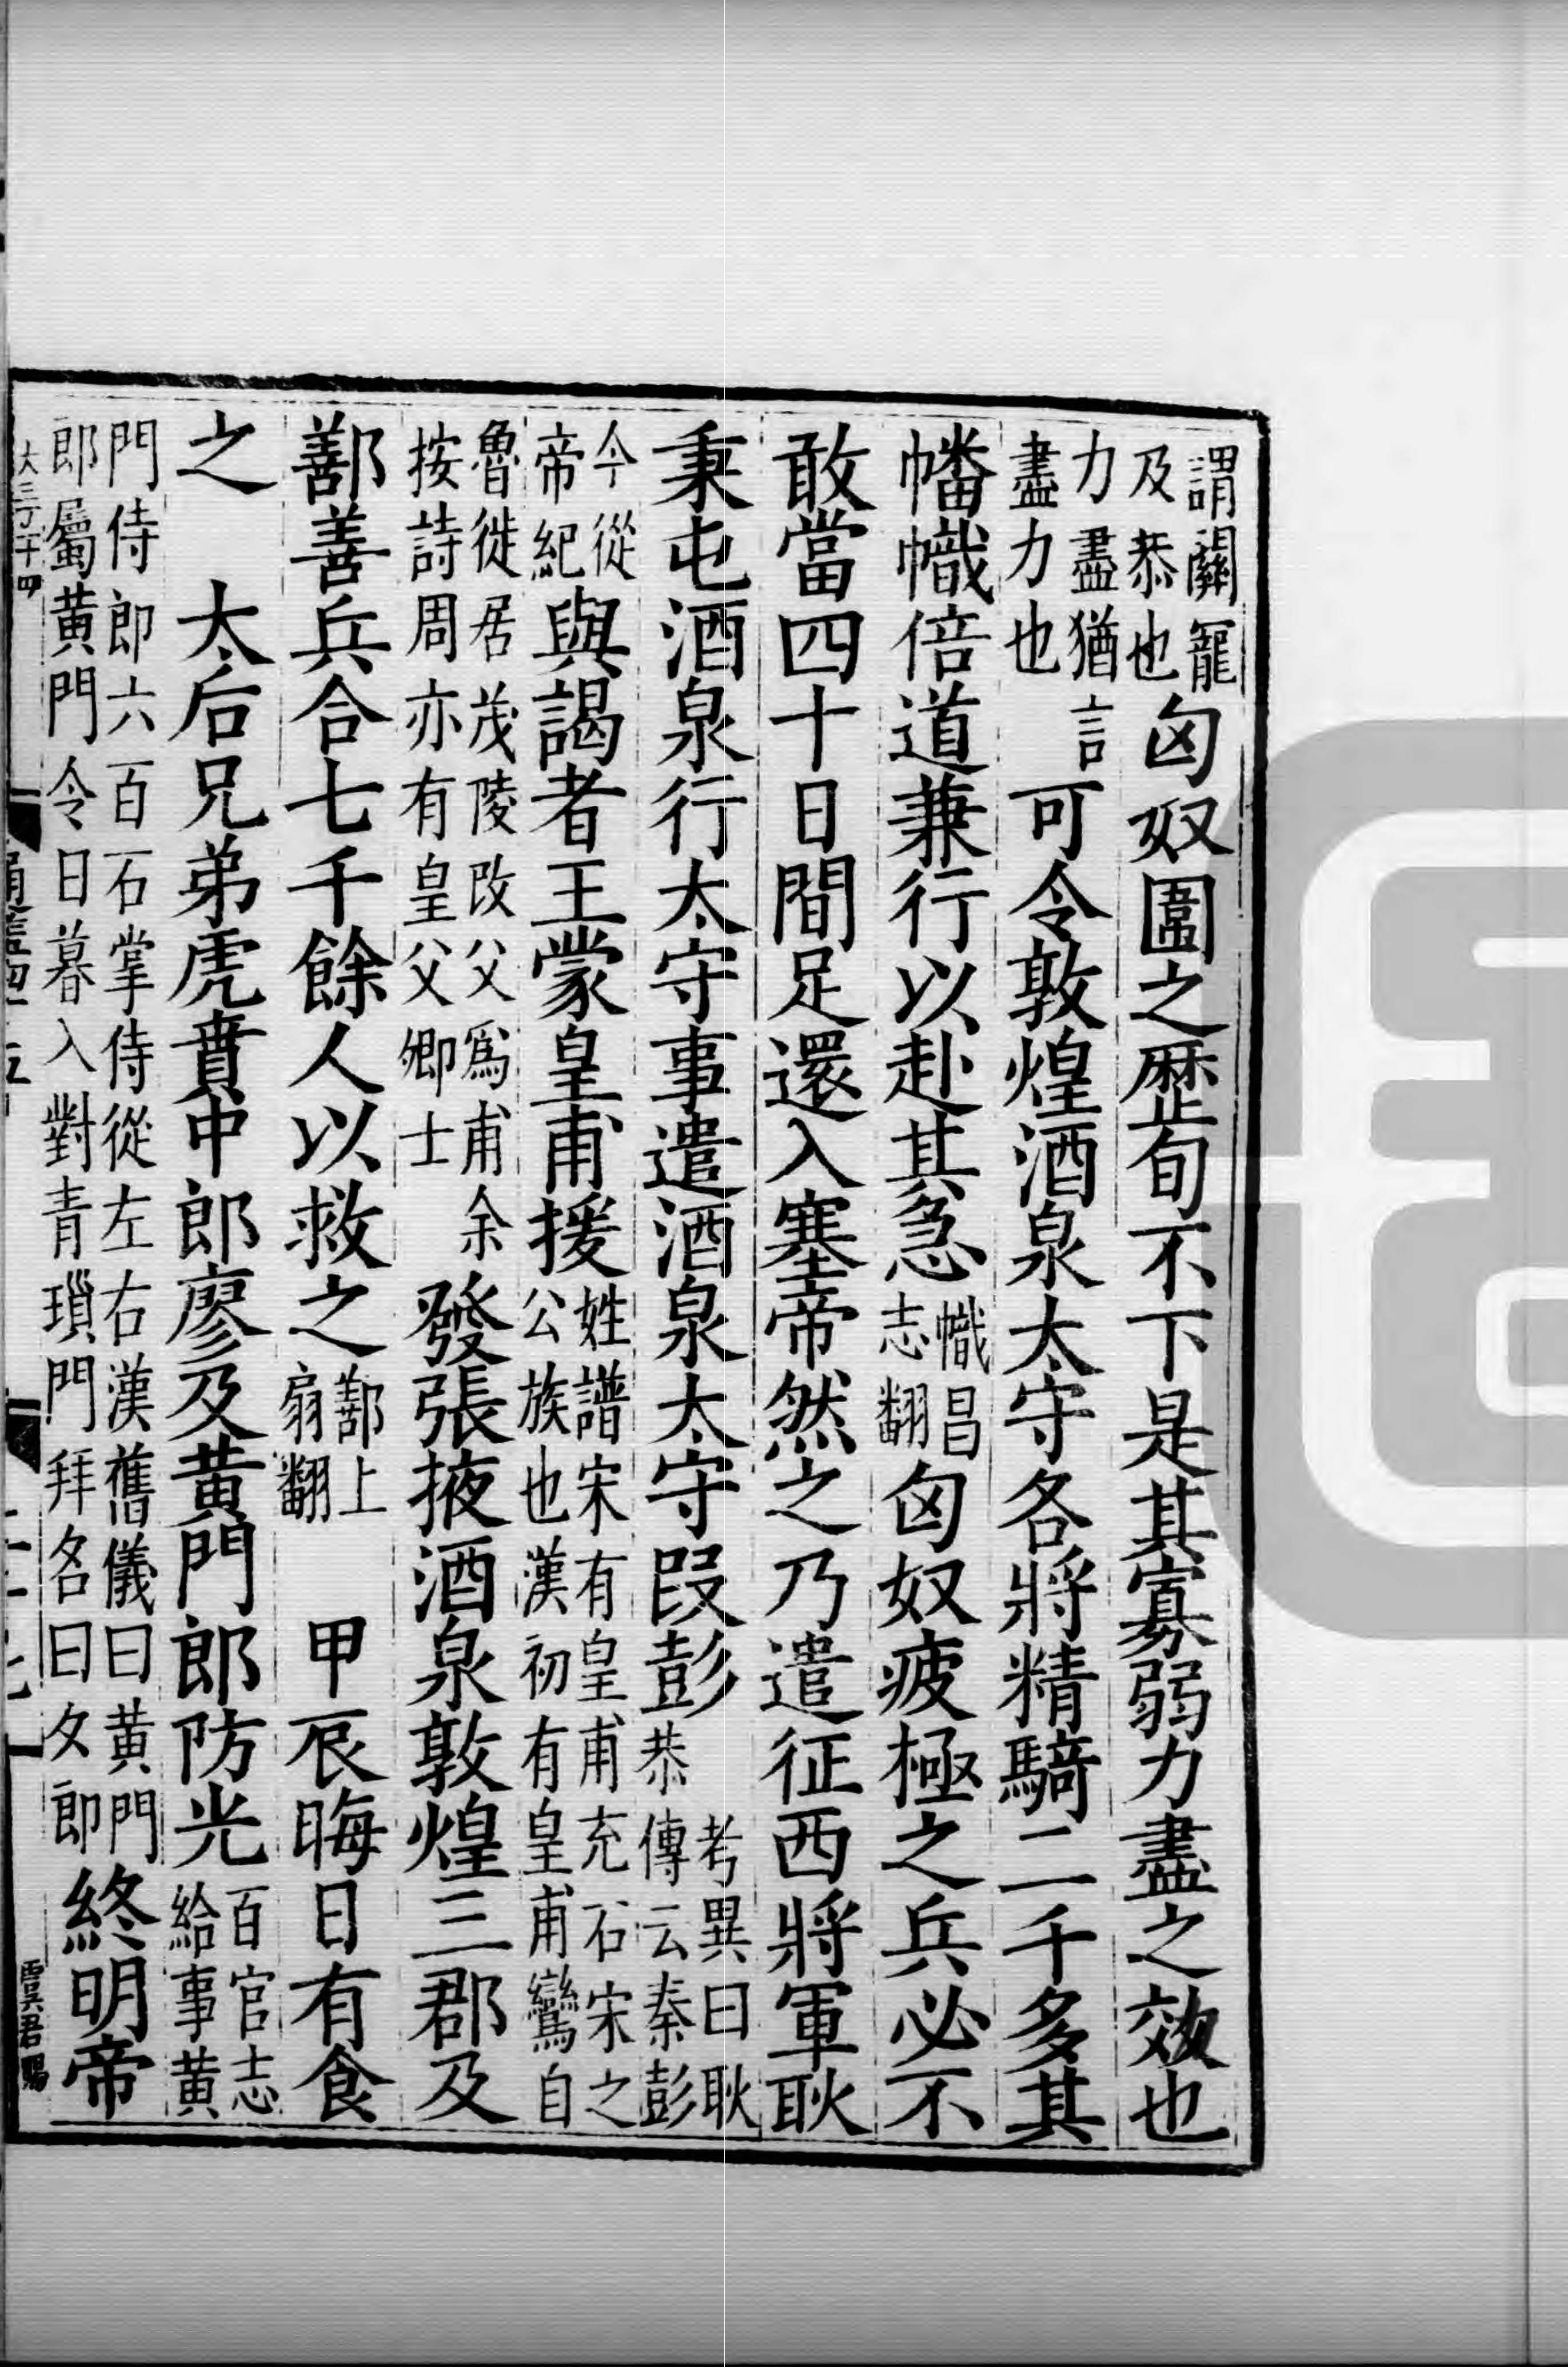 謂關寵及恭也匈奴圍之歴旬不下是其寡弱力盡之效也
力盡猶言盡力也可令敦煌酒泉太守各將精騎二千多其
幡幟倍道兼行以赴其急幟昌志翻匈奴疲極之兵必不
敢當四十日間足還入塞帝然之乃遣征西將軍耿
秉屯酒泉行太守事遣酒泉太守段彭考異曰耿恭傳云秦彭
今從帝紀與謁者王蒙皇甫援姓譜宋有皇甫充石宋之公族也漢初有皇甫鸞自
魯徙居茂陵改父爲甫余按詩周亦有皇父卿士發張掖酒泉敦煌三郡及
鄯善兵合七千餘人以救之鄯上扇翻 甲辰晦日有食
之 太后兄弟虎賁中郎廖及黄門郎防光百官志給事黄
門侍郎六百石掌侍從左右漢舊儀曰黄門郎屬黄門令日暮入對青瑣門拜名曰夕郎終明帝